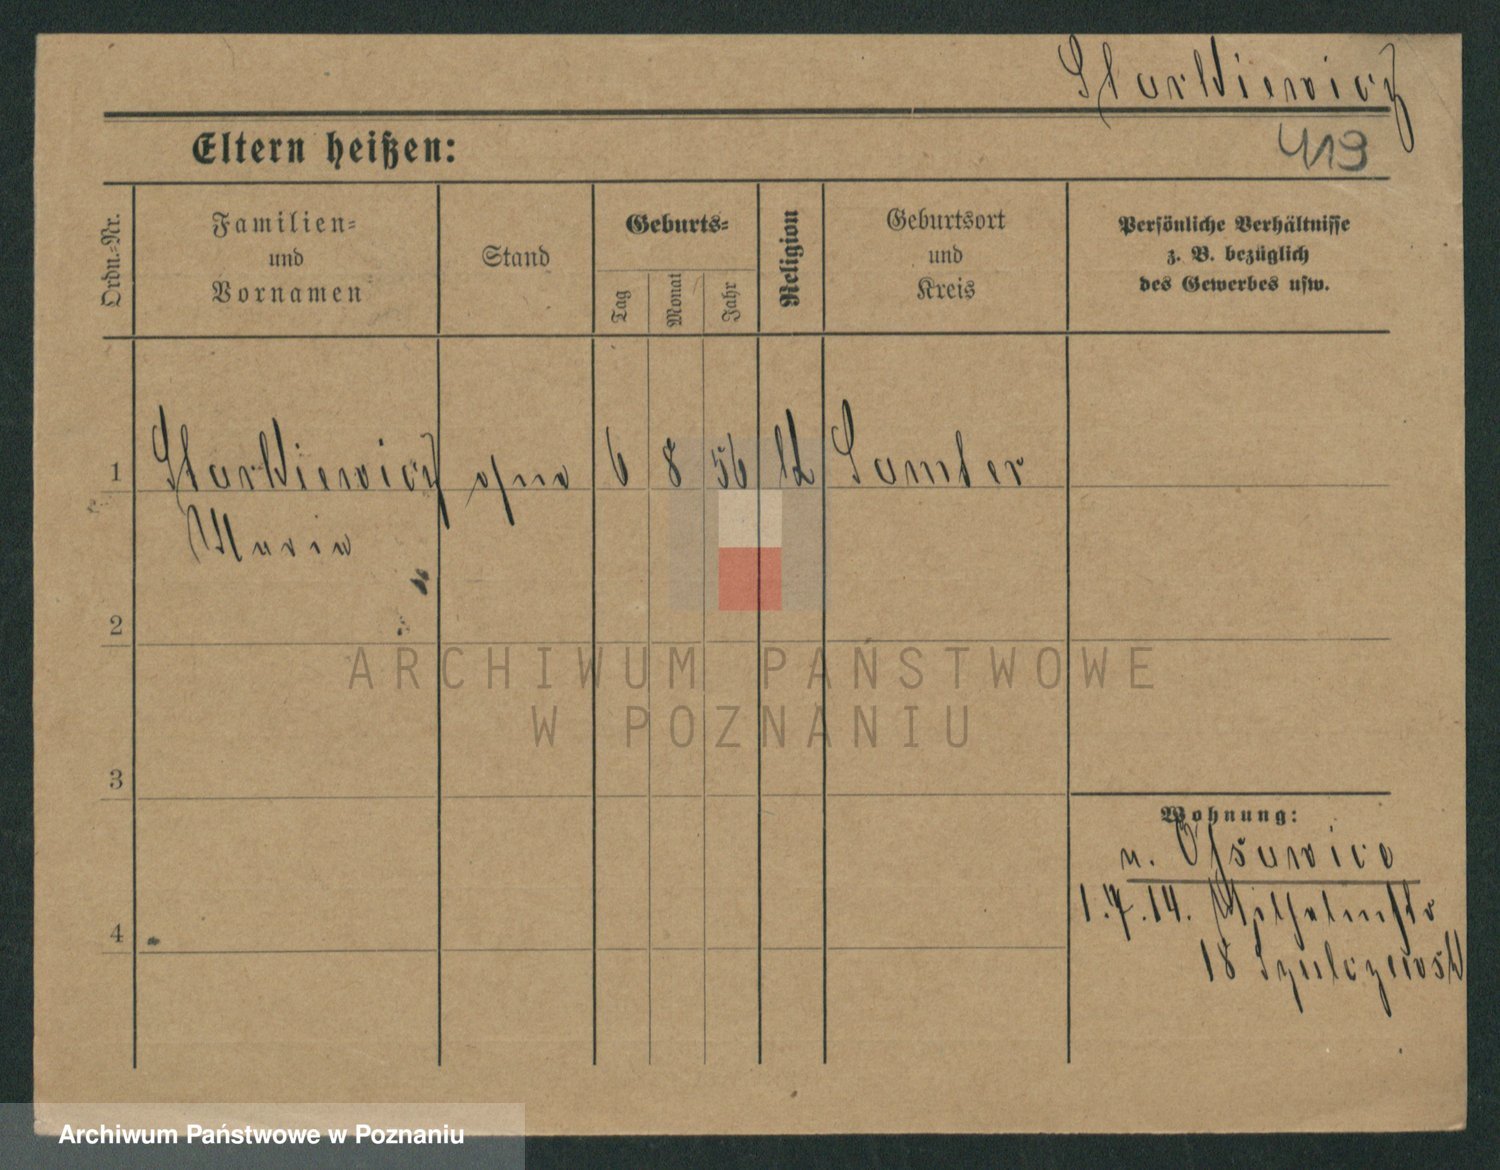 Starkiewicz
419
Eltern heißen:
Ordn.-Nr.
Familien-
und
Vornamen
Stand
Geburts-
Tag
Monat
Jahr
Religion
Geburtsort
und
Kreis
Persönliche Verhältnisse
z. B. bezüglich
des Gewerbes usw.
1 Starkiewicz ohne 6 8 56 kt Samter
Maria
2
3
4
Wohnung:
n.
1.7.14. Wilhelmstr
18 Szulczewsk
ARCHIWUM PAŃSTWOWE
W POZNANIU
Archiwum Państwowe w Poznaniu